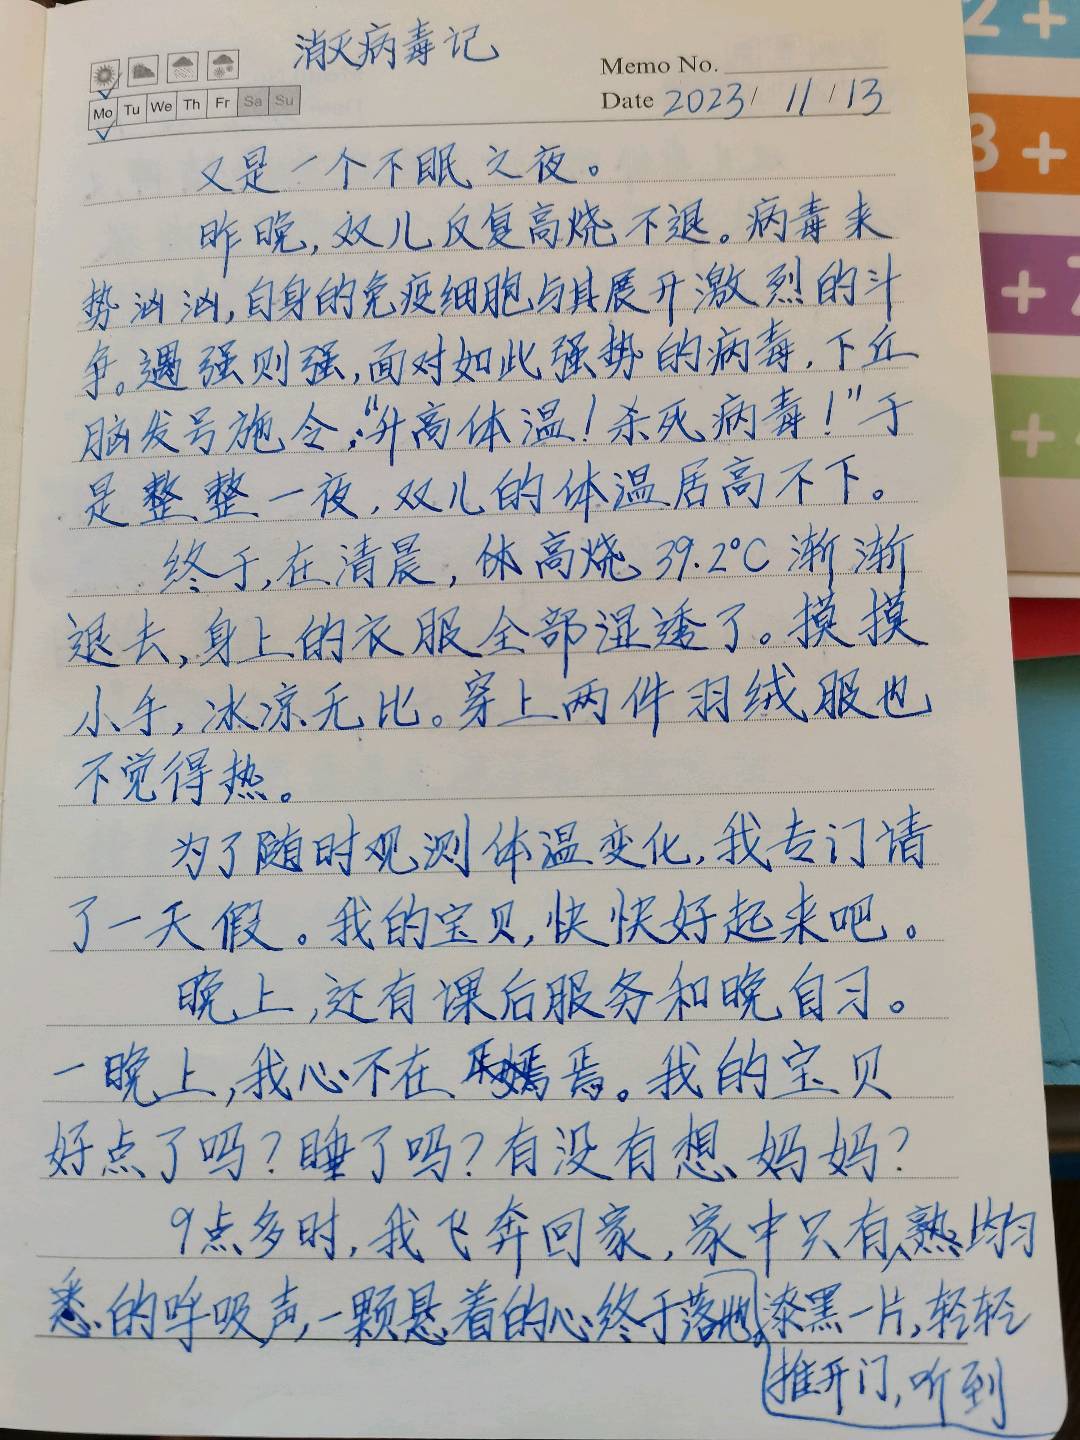 消灭病毒记
Memo No.
Mo Tu We Th Fr Sa Su
Date 2023/ 11 / 13
又是一个不眠之夜。
昨晚，双儿反复高烧不退。病毒来
势汹汹，自身的免疫细胞与其展开激烈的斗
争。遇强则强，面对如此强势的病毒，下丘
脑发号施令，“升高体温！杀死病毒！”于
是整整一夜，双儿的体温居高不下。
终于，在清晨，体高烧39.2°C渐渐
退去，身上的衣服全部湿透了。摸摸
小手，冰凉无比。穿上两件羽绒服也
不觉得热。
为了随时观测体温变化，我专门请
了一天假。我的宝贝，快快好起来吧。
晚上，还有课后服务和晚自习。
一晚上，我心不在焉。我的宝贝
好点了吗？睡了吗？有没有想妈妈？
9点多时，我飞奔回家，家中只有熟均匀
悉的呼吸声，一颗悬着的心终于落地。漆黑一片，轻轻
推开门，听到
2 +
3 +
+ 7
+